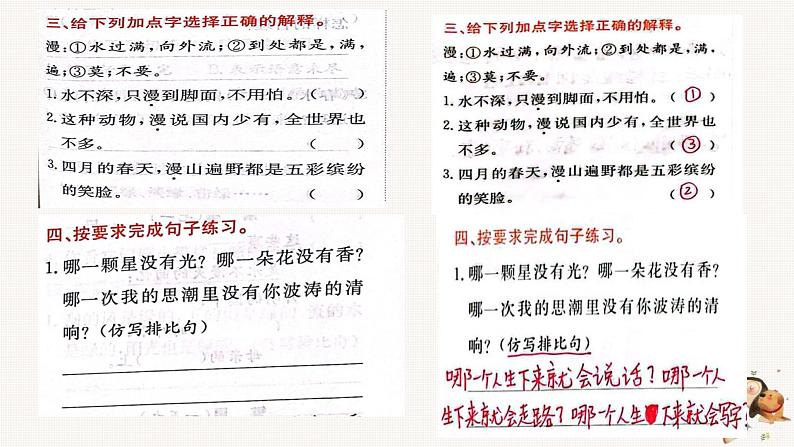 三、给下列加点字选择正确的解释。
漫:①水过满,向外流;②到处都是,满,
遍;③莫;不要。
1.水不深,只漫到脚面,不用怕。(    )
2.这种动物,漫说国内少有,全世界也
不多。(    )
3.四月的春天,漫山遍野都是五彩缤纷
的笑脸。(    )
四、按要求完成句子练习。
1.哪一颗星没有光?哪一朵花没有香?
哪一次我的思潮里没有你波涛的清
响?(仿写排比句)
三、给下列加点字选择正确的解释。
漫:①水过满,向外流;②到处都是,满,
遍;③莫;不要。
1.水不深,只漫到脚面,不用怕。( ① )
2.这种动物,漫说国内少有,全世界也
不多。( ③ )
3.四月的春天,漫山遍野都是五彩缤纷
的笑脸。( ② )
四、按要求完成句子练习。
1.哪一颗星没有光?哪一朵花没有香?
哪一次我的思潮里没有你波涛的清
响?(仿写排比句)
哪一个人生下来就会说话?哪一个人
生下来就会走路?哪一个人生下来就会写字?